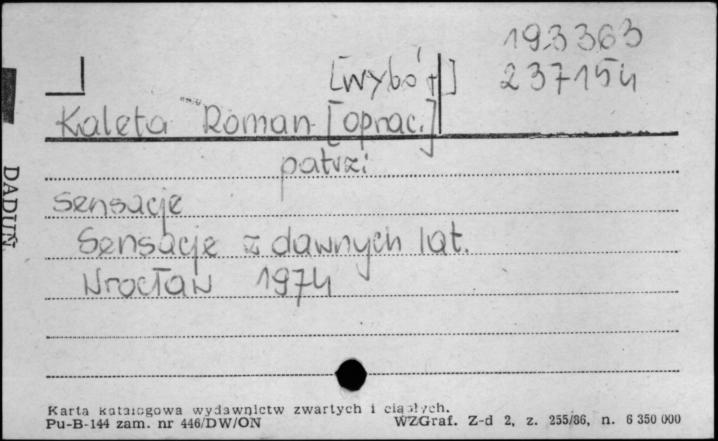 193363
[wybór] 237154
Kaleta Roman [oprac.]
patrzi
sensacje
Sensacje z dawnych lat.
Wrocław 1974
DADUŃ
Karta katalogowa wydawnictw zwartych i ciągłych.
Pu-B-144 zam. nr 446/DW/ON WZGraf. Z-d 2, z. 255/86, n. 6 350 000